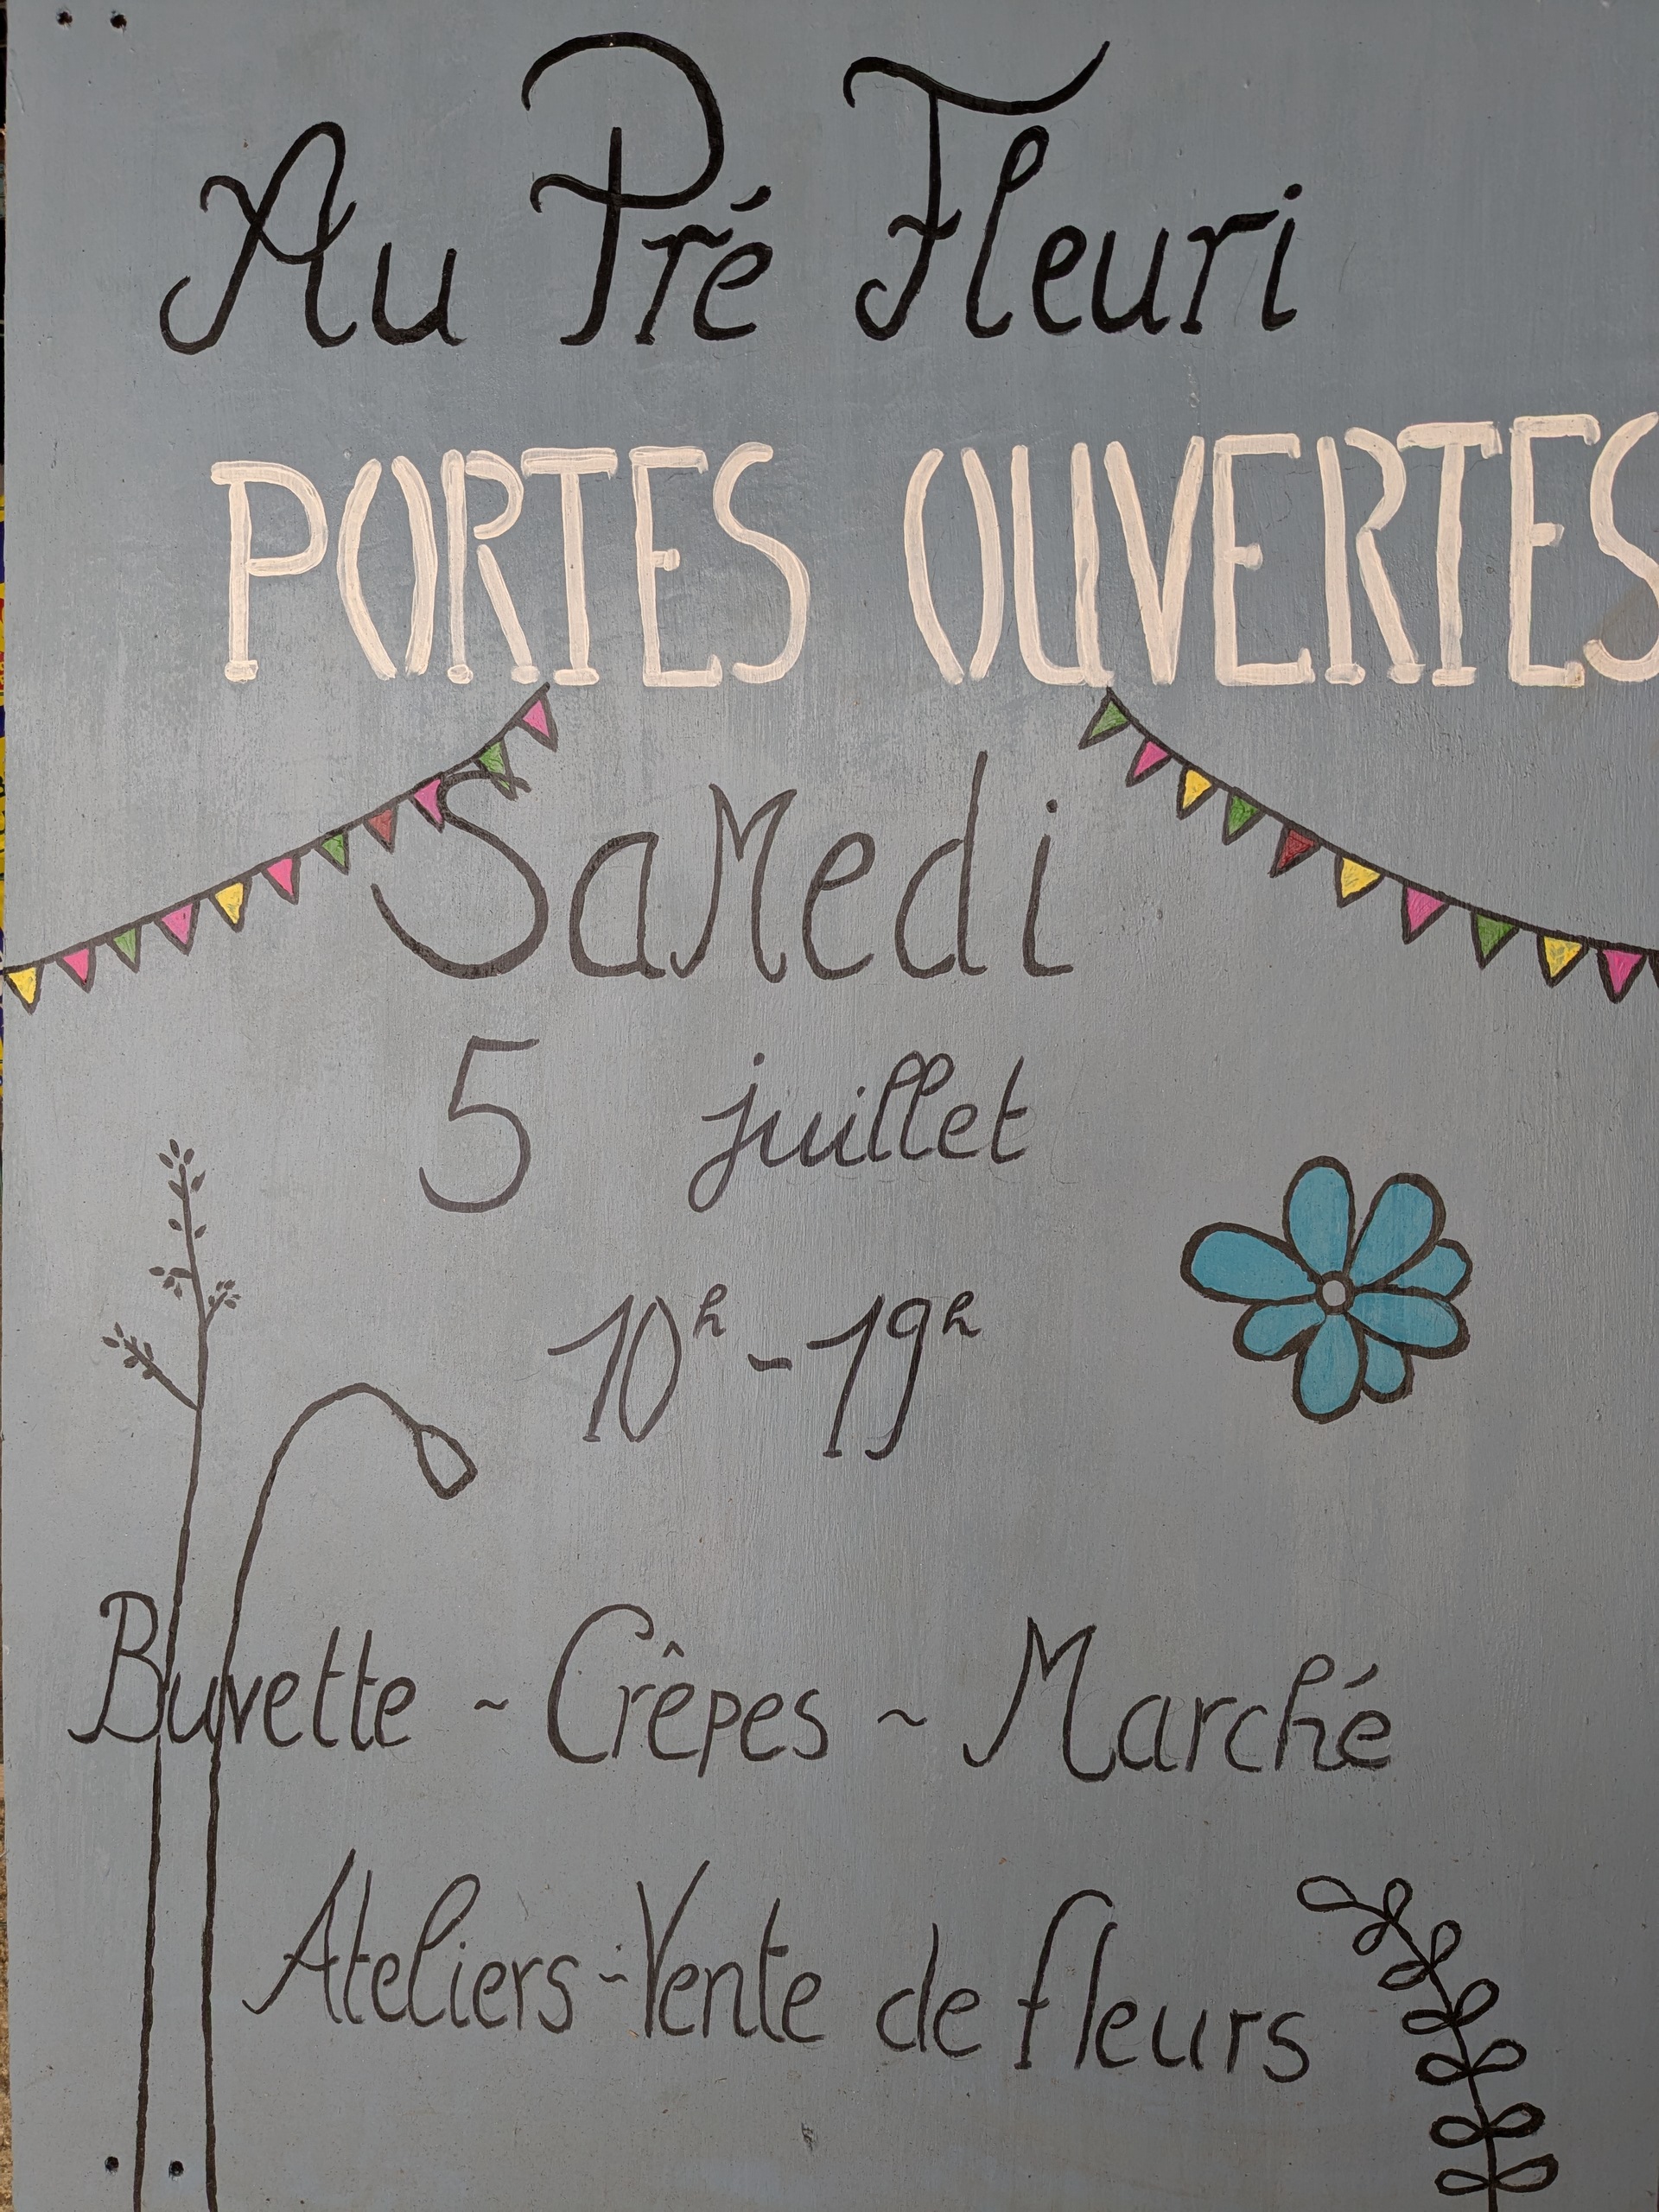 Au Pré Fleuri
PORTES OUVERTES
Samedi
5 juillet
10h - 19h
Buvette ~ Crêpes ~ Marché
Ateliers ~ Vente de fleurs